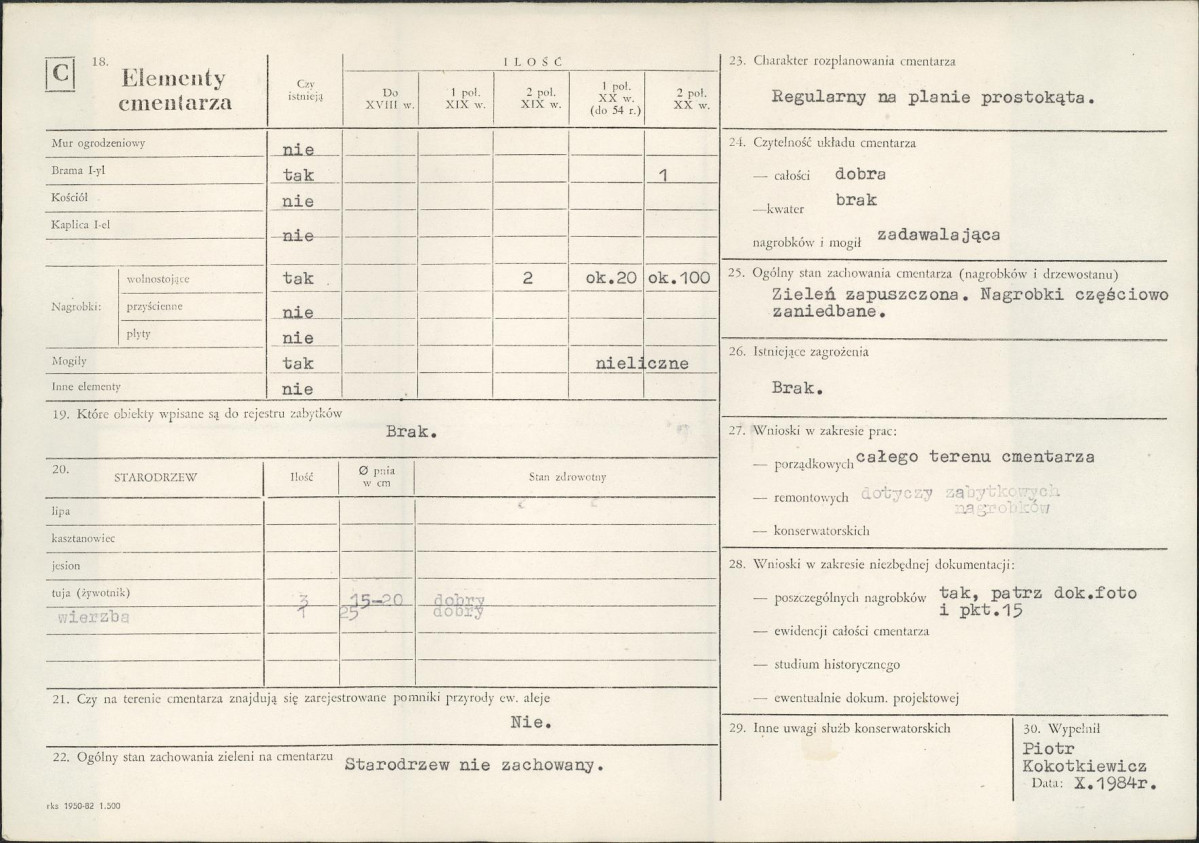 C
18. Elementy cmentarza
Czy istnieją
ILOŚĆ
Do XVIII w.
1 poł. XIX w.
2 poł. XIX w.
1 poł. XX w. (do 54 r.)
2 poł. XX w.
Mur ogrodzeniowy nie
Brama I-yl tak 1
Kościół nie
Kaplica I-el nie
Nagrobki:
wolnostojące tak 2 ok.20 ok.100
przyścienne nie
płyty nie
Mogiły tak nieliczne
Inne elementy nie
19. Które obiekty wpisane są do rejestru zabytków
Brak.
20. STARODRZEW Ilość Ø pnia w cm Stan zdrowotny
lipa
kasztanowiec
jesion
tuja (żywotnik) 3 15-20 dobry
wierzba 1 25 dobry
21. Czy na terenie cmentarza znajdują się zarejestrowane pomniki przyrody ew. aleje
Nie.
22. Ogólny stan zachowania zieleni na cmentarzu Starodrzew nie zachowany.
rks 1950-82 1.500
23. Charakter rozplanowania cmentarza
Regularny na planie prostokąta.
24. Czytelność układu cmentarza
— całości dobra
—kwater brak
nagrobków i mogił zadawalająca
25. Ogólny stan zachowania cmentarza (nagrobków i drzewostanu)
Zieleń zapuszczona. Nagrobki częściowo
zaniedbane.
26. Istniejące zagrożenia
Brak.
27. Wnioski w zakresie prac:
— porządkowych całego terenu cmentarza
— remontowych dotyczy zabytkowych
nagrobków
— konserwatorskich
28. Wnioski w zakresie niezbędnej dokumentacji:
— poszczególnych nagrobków tak, patrz dok.foto
i pkt.15
— ewidencji całości cmentarza
— studium historycznego
— ewentualnie dokum. projektowej
29. Inne uwagi służb konserwatorskich
30. Wypełnił
Piotr
Kokotkiewicz
Data: X.1984r.